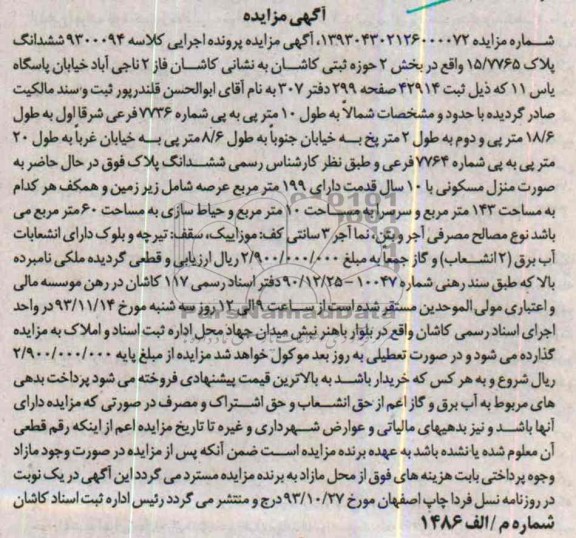 آگهی مزایده
شماره مزایده ۱۳۹۳۰۴۳۰۲۱۲۶۰۰۰۰۷۲، آگهی مزایده پرونده اجرایی کلاسه ۹۳۰۰۰۹۴ ششدانگ
پلاک ۱۵/۷۷۶۵ واقع در بخش ۲ حوزه ثبتی کاشان به نشانی کاشان فاز ۲ ناجی آباد خیابان پاسگاه
یاس ۱۱ که ذیل ثبت ۴۲۹۱۴ صفحه ۲۹۹ دفتر ۳۰۷ به نام آقای ابوالحسن قلندرپور ثبت و سند مالکیت
صادر گردیده با حدود و مشخصات شمالاً به طول ۱۰ متر پی به پی شماره ۷۷۳۶ فرعی شرقا اول به طول
۱۸/۶ متر پی و دوم به طول ۲ متر پخ به خیابان جنوباً به طول ۸/۶ متر پی به خیابان غرباً به طول ۲۰
متر پی به پی شماره ۷۷۶۴ فرعی و طبق نظر کارشناس رسمی ششدانگ پلاک فوق در حال حاضر به
صورت منزل مسکونی با ۱۰ سال قدمت دارای ۱۹۹ متر مربع عرصه شامل زیر زمین و همکف هر کدام
به مساحت ۱۴۳ متر مربع و سرسرا به مساحت ۱۰ متر مربع و حیاط سازی به مساحت ۶۰ متر مربع می
باشد نوع مصالح مصرفی آجر و بتن، نما آجر ۳ سانتی کف: موزاییک، سقف: تیرچه و بلوک دارای انشعابات
آب برق (۲ انشعاب) و گاز جمعاً به مبلغ ۲/۹۰۰/۰۰۰/۰۰۰ ریال ارزیابی و قطعی گردیده ملکی نامبرده
بالا که طبق سند رهنی شماره ۱۰۰۴۷ - ۹۰/۱۲/۲۵ دفتر اسناد رسمی ۱۱۷ کاشان در رهن موسسه مالی
و اعتباری مولی الموحدین مستقر شده است از ساعت ۹ الی ۱۲ روز سه شنبه مورخ ۹۳/۱۱/۱۴ در واحد
اجرای اسناد رسمی کاشان واقع در بلوار باهنر نبش میدان جهاد محل اداره ثبت اسناد و املاک به مزایده
گذارده می شود و در صورت تعطیلی به روز بعد موکول خواهد شد مزایده از مبلغ پایه ۲/۹۰۰/۰۰۰/۰۰۰
ریال شروع و به هر کس که خریدار باشد به بالاترین قیمت پیشنهادی فروخته می شود پرداخت بدهی
های مربوط به آب برق و گاز اعم از حق انشعاب و حق اشتراک و مصرف در صورتی که مزایده دارای
آنها باشد و نیز بدهیهای مالیاتی و عوارض شهرداری و غیره تا تاریخ مزایده اعم از اینکه رقم قطعی
آن معلوم شده یا نشده باشد به عهده برنده مزایده است ضمن آنکه پس از مزایده در صورت وجود مازاد
وجوه پرداختی بابت هزینه های فوق از محل مازاد به برنده مزایده مسترد می گردد این آگهی در یک نوبت
در روزنامه نسل فردا چاپ اصفهان مورخ ۹۳/۱۰/۲۷ درج و منتشر می گردد رئیس اداره ثبت اسناد کاشان
شماره م / الف ۱۴۸۶